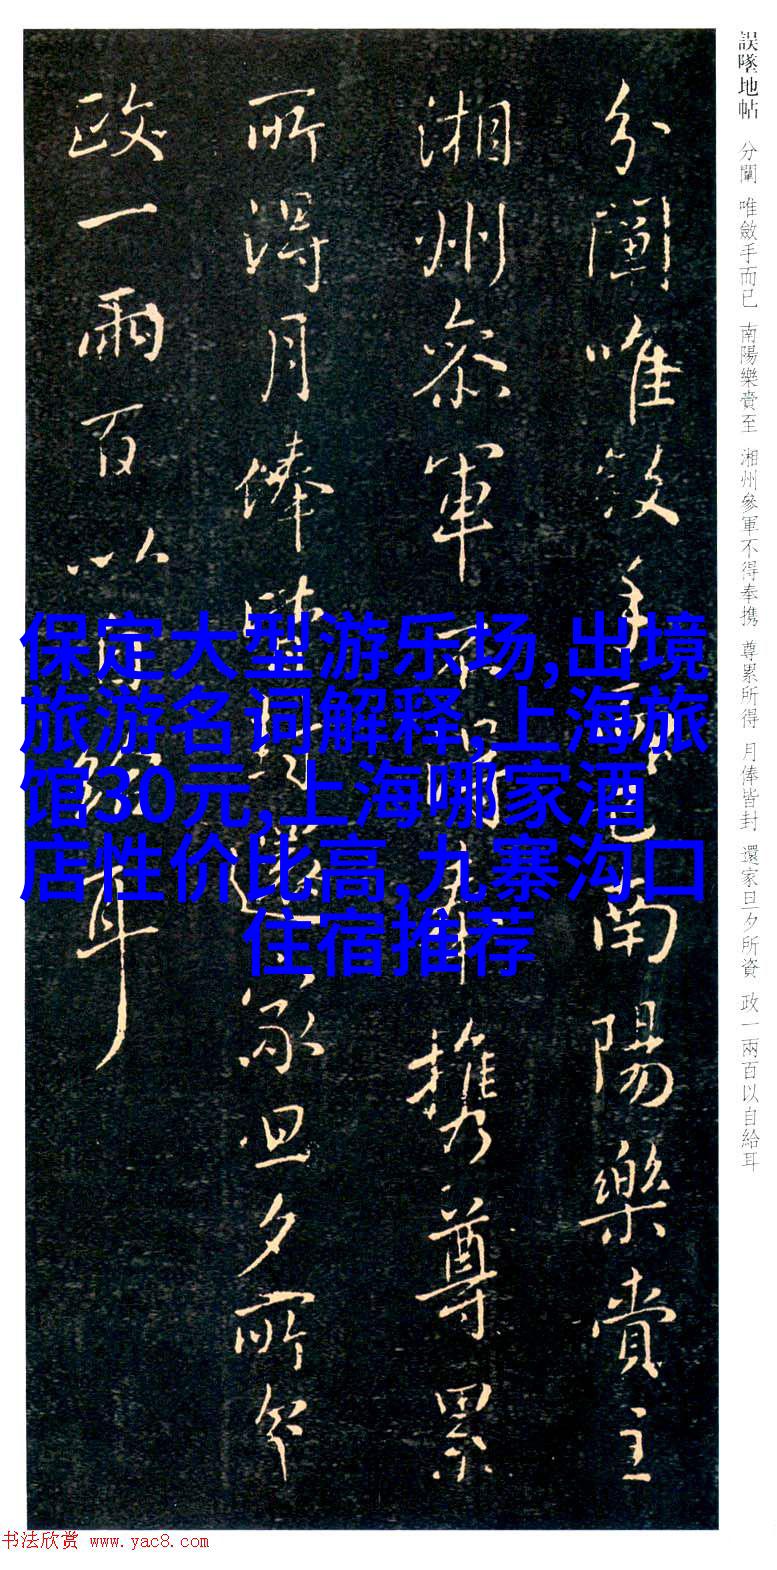 誤墜地帖 分闡 唯斂手而已 南陽樂賁至 湘州參軍不得奉携 尊累所得 月俸皆封 還家旦夕所資 政一兩百以自給耳
分闡唯斂手而已南陽樂賁至
湘州參軍不得奉携尊累
所得月俸皆封還家旦夕所資
政一兩百以自給耳
保定大型游乐场,出境
旅游名词解释,上海旅
馆30元,上海哪家酒
店性价比高,九寨沟口
住宿推荐
书法欣赏 www.yac8.com